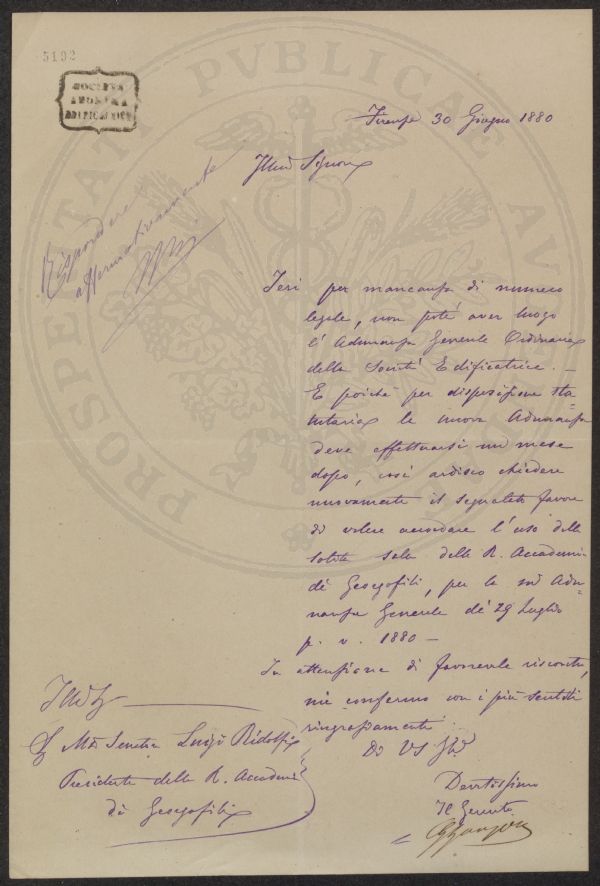 5192
SOCIETÀ
ANONIMA
EDIFICATRICE
Firenze 30 Giugno 1880
Illmo Signore
Rispondere
affermativamente
Ieri per mancanza di numero
legale, non poté aver luogo
l'Adunanza Generale Ordinaria
della Società Edificatrice. —
E poichè per disposizione sta=
tutaria la nuova Adunanza
deve effettuarsi un mese
dopo, così ardisco chiedere
nuovamente il segnalato favore
di volere accordare l'uso della
solita sala della R. Accademia
dei Georgofili, per la Adu=
nanza Generale de' 29 Luglio
p. v. 1880 —
In attenzione di favorevole riscontro,
mi confermo con i più sentiti
ringraziamenti
Di VS Illma
Devotissimo
Il Gerente
Illmo Sig
Sig Mse Senator Luigi Ridolfi
Presidente della R. Accademia
dei Georgofili
PROSPERITATI PUBLICAE AUGENDAE